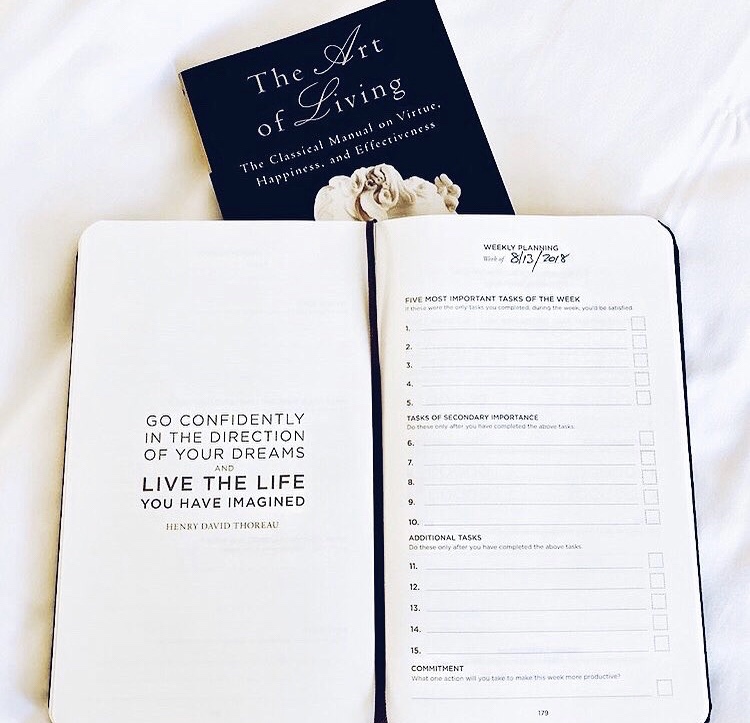 The Art
of Living
The Classical Manual on Virtue,
Happiness, and Effectiveness
GO CONFIDENTLY
IN THE DIRECTION
OF YOUR DREAMS
AND
LIVE THE LIFE
YOU HAVE IMAGINED
HENRY DAVID THOREAU
WEEKLY PLANNING
Week of 8/13/2018
FIVE MOST IMPORTANT TASKS OF THE WEEK
If these were the only tasks you completed, during the week, you'd be satisfied.
1.
2.
3.
4.
5.
TASKS OF SECONDARY IMPORTANCE
Do these only after you have completed the above tasks.
6.
7.
8.
9.
10.
ADDITIONAL TASKS
Do these only after you have completed the above tasks.
11.
12.
13.
14.
15.
COMMITMENT
What one action will you take to make this week more productive?
179